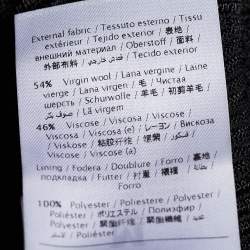 External fabric / Tessuto esterno / Tissu
extérieur / Tejido exterior / 表地 /
внешний материал / Oberstoff / 面料 /
外部布料 / Tecido exterior
54% Virgin wool / Lana vergine / Laine
vierge / Lana virgen / 毛 / Чистая
шерсть / Schurwolle / 羊毛 / 初剪羊毛 /
Lã virgem
46% Viscose / Viscosa / Viscose /
Viscosa / Viscosa (e) / レーヨン / Вискоза
/ Viskose / 粘胶纤维 / 嫘縈 /
Viscose / Viscose (a)
Lining / Fodera / Doublure / Forro / 裏地 /
подкладка / Futter / 衬里 / 襯裡 /
Forro
100% Polyester / Poliestere / Polyester /
Poliéster / ポリエステル / Полиэфир /
Polyester / 聚酯纤维 / 聚酯纖維 /
Poliéster